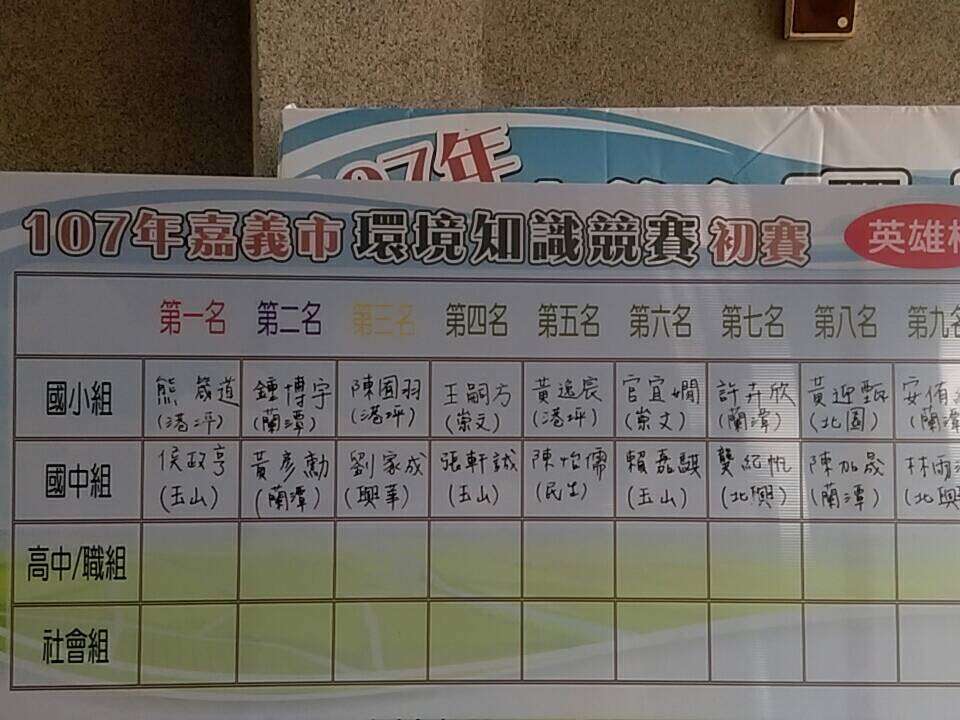 107年
107年嘉義市環境知識競賽初賽 英雄
第一名 第二名 第三名 第四名 第五名 第六名 第七名 第八名 第九名
國小組 熊箴道 鍾博宇 陳囿羽 王嗣方 黃逸宸 官宜嫺 許卉欣 黃迎甄 安侑
(港坪) (蘭潭) (港坪) (崇文) (港坪) (崇文) (蘭潭) (北園) (蘭潭
國中組 侯政亨 黃彥勳 劉家成 張軒誠 陳怡儒 賴磊騏 龔紀帆 陳加晟 林雨
(玉山) (蘭潭) (興華) (玉山) (民生) (玉山) (北興) (蘭潭) (北興
高中/職組
社會組